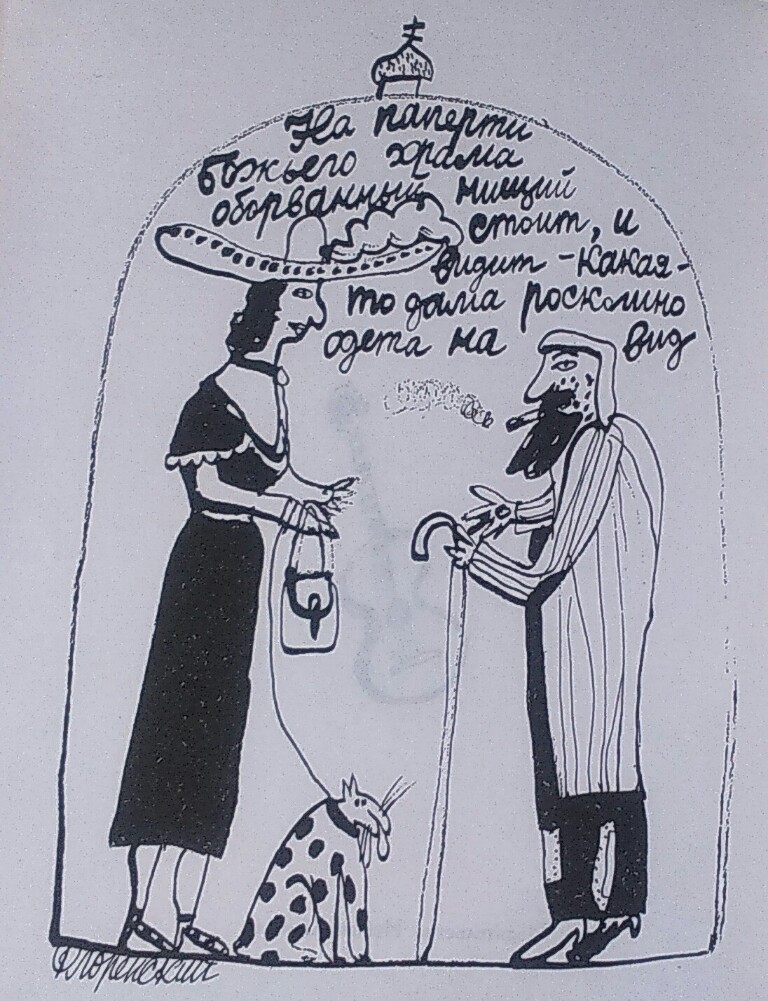 На паперти
божьего храма
оборванный нищий
стоит, и
видит - какая-
то дама роскошно
одета на вид
Флоренский